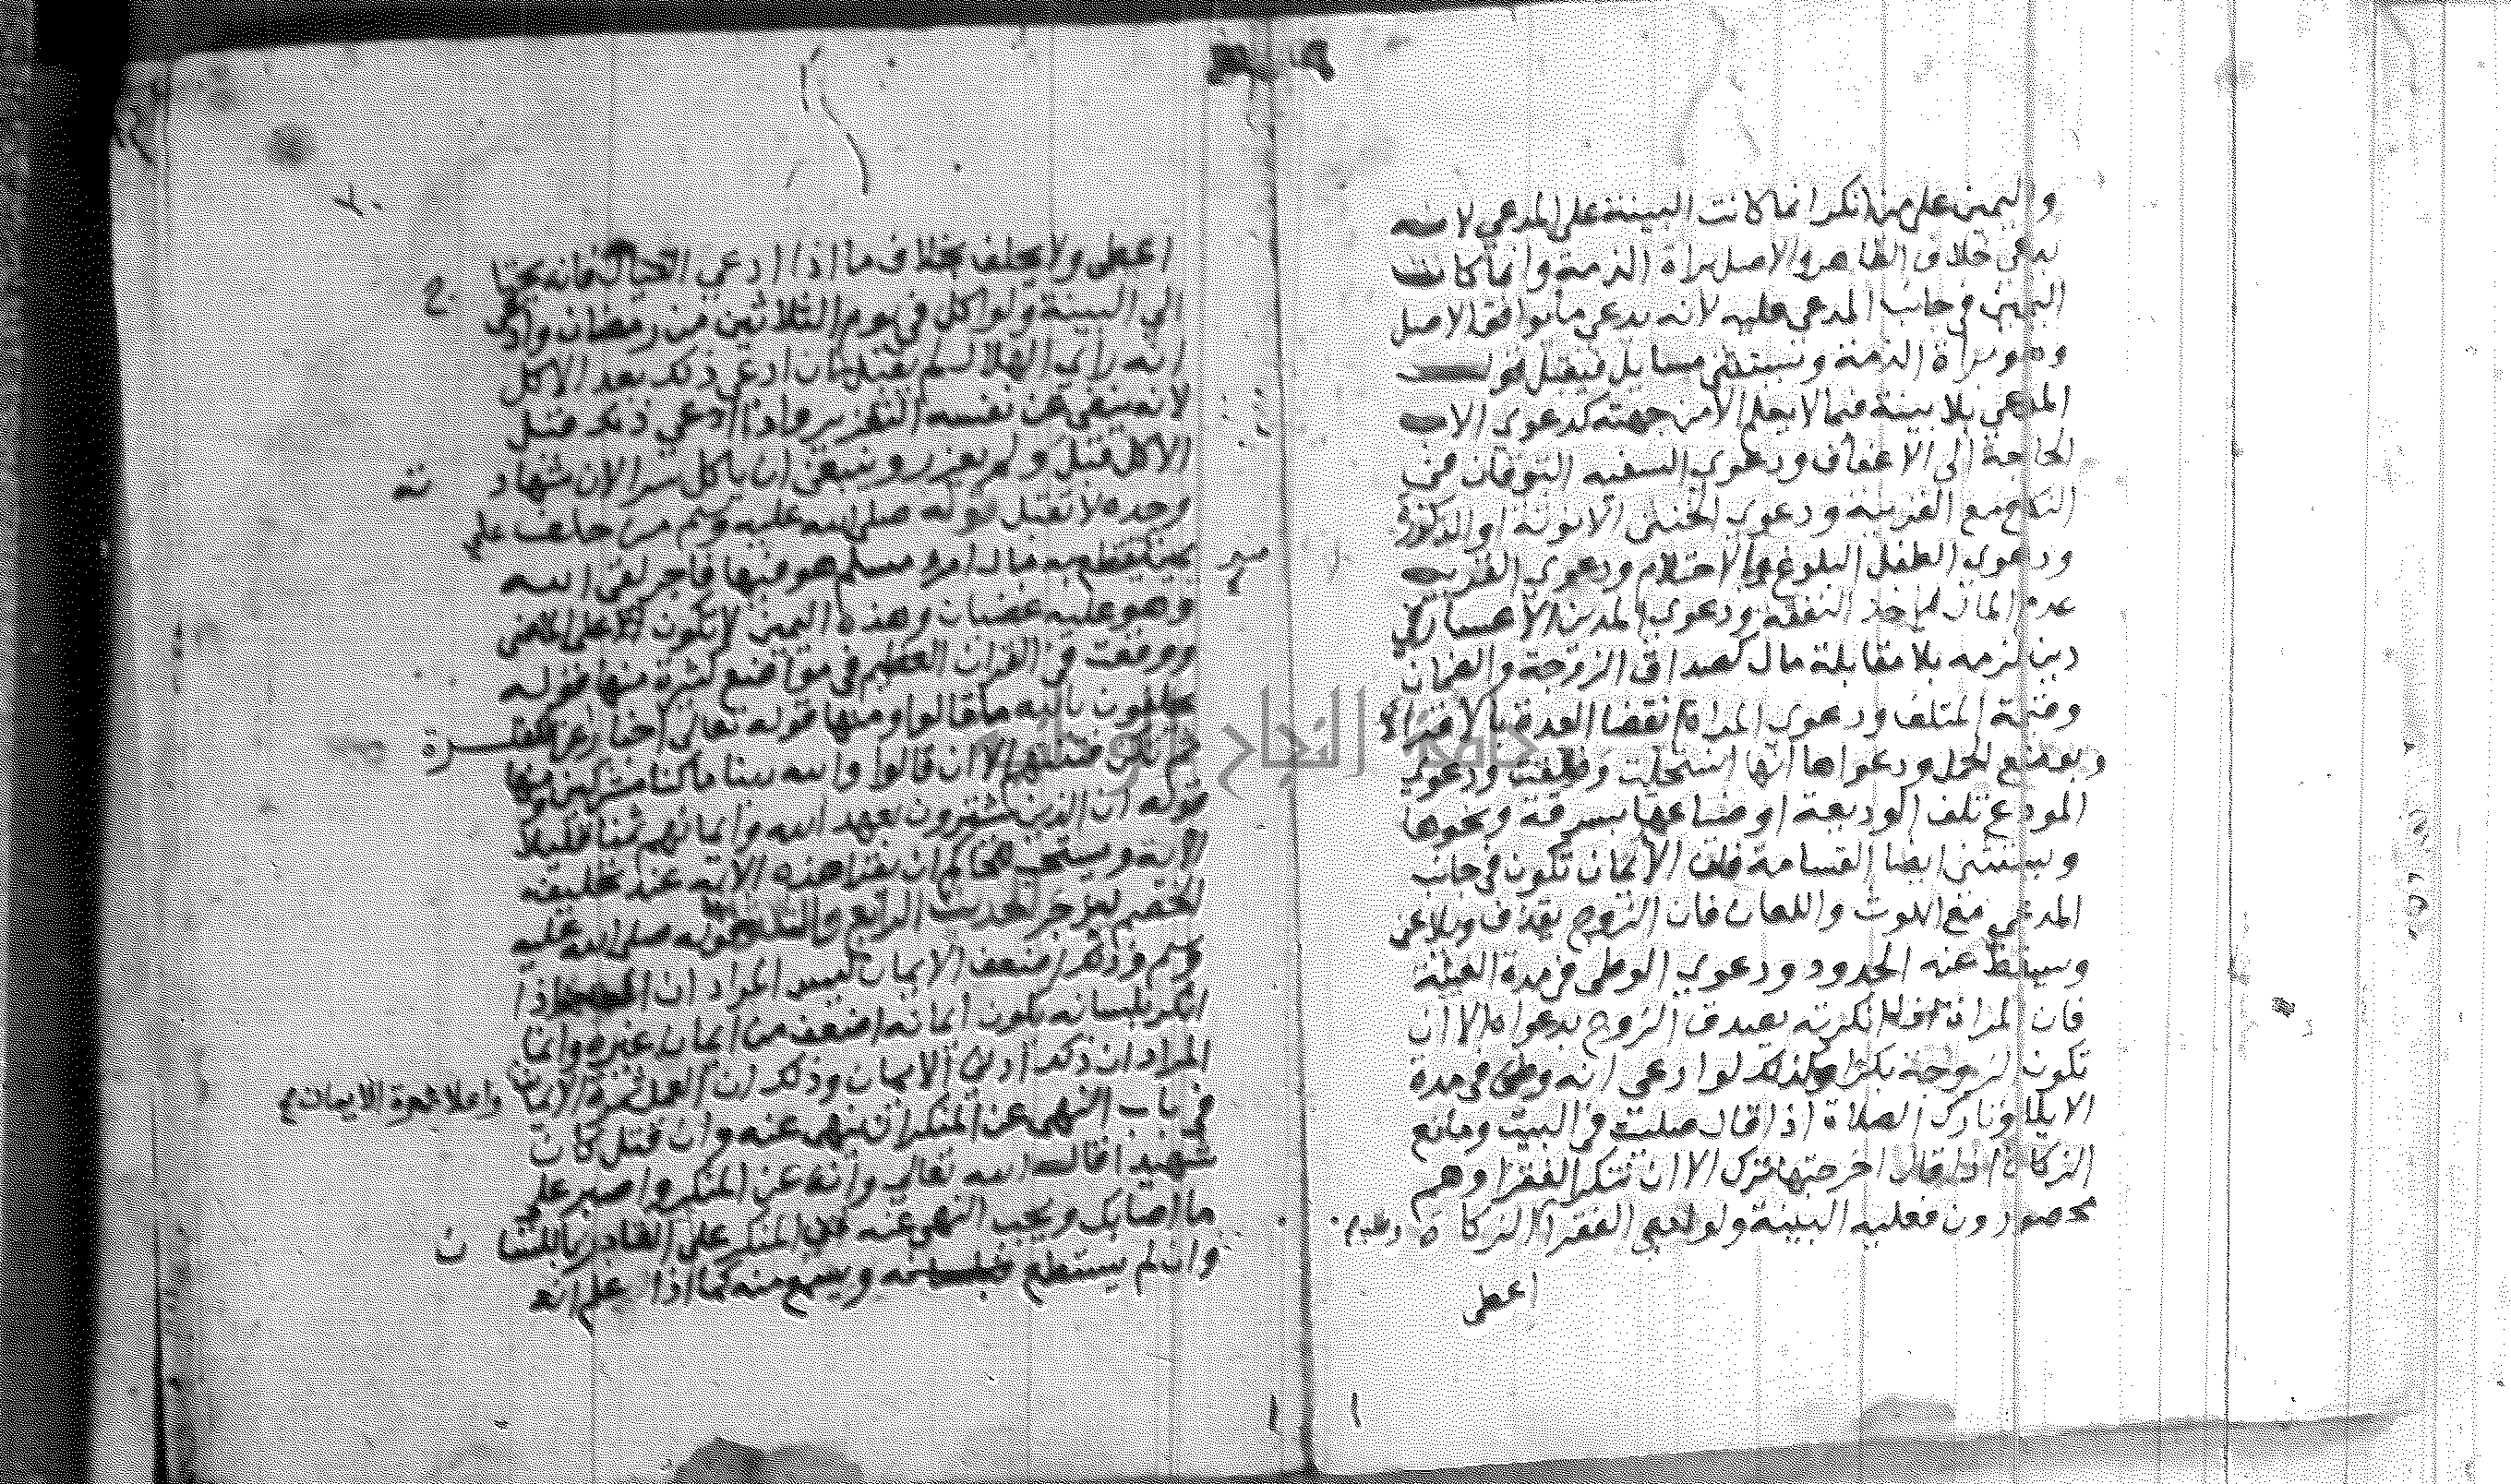 واليمين على من انكر انما كانت البينة على المدعي لانه
يدعي خلاف الظاهر والاصل براة الذمة وانما كانت
اليمين في جانب المدعي عليه لانه يدعي ما يوافق الاصل
وهو براة الذمة ويستثني مسايل فيقبل قول
المدعي بلا بينة فيما لا يعلم الا من جهته كدعوي الاب
الحاجة الى الاعفاف ودعوي السفيه التوقان الى
النكاح مع القرينة ودعوي الخنثى الانوثة او الذكورة
ودعوي الطفل البلوغ بالاحتلام ودعوي القريب
عدم المال لياخذ النفقة ودعوي المدين الاعسار في
دين لزمه بلا مقابلة مال كصداق الزوجة والضمان
وقيمة المتلف ودعوي المراة انقضا العدة بالاقرا
وبوضع الحمل ودعواها انها استحلت وطلقت ودعوي
المودع تلف الوديعة او ضياعها بسرقة ونحوها
ويستثنى ايضا القسامة فان الايمان تكون في جانب
المدعي مع اللوث واللعان فان الزوج يقذف ويلاعن
ويسقط عنه الحدود ودعوي الوطى في مدة العنة
فان المراة اذا انكرته يصدق الزوج بدعواه الا ان
تكون الزوجة بكرا وكذلك لو ادعى انه وطئ في مدة
الايلا وتارك الصلاة اذا قال صليت في البيت ومانع
الزكاة اذا قال اخرجتها الا ان ينكر الفقرا وهم
محصورون فعليه البينة ولو ادعى الفقرا الزكاة
اعطى
اعطى ولا يحلف بخلاف ما اذا ادعى العيال فانه يحتاج
الي البينة ولو اكل في يوم الثلاثين من رمضان وادعى
انه راي الهلال لم يقبل ان ادعى ذلك بعد الاكل
لانه ينفي عن نفسه التعزير واذا ادعي ذلك قبل
الاكل قبل ولم يعزر وينبغي ان ياكل سرا لان شهادته
وحده لا تقبل قوله صلى الله عليه وسلم من حلف على
يمين يقتطع بها مال امرء مسلم هو فيها فاجر لقي الله
وهو عليه غضبان وهذه اليمين لا تكون الا على الماضي
ووقعت في القران العظيم في مواضع كثيرة منها قوله
يحلفون بالله ما قالوا ومنها قوله تعالى اخبارا عن الكفرة
ثم لم تكن فتنتهم الا ان قالوا والله ربنا ما كنا مشركين ومنها
قوله ان الذين يشترون بعهد الله وايمانهم ثمنا قليلا
الاية ويستحب للحاكم ان يقرا هذه الاية عند تحليفه
للخصم لينزجر الحديث الرابع والثلاثون قوله صلى الله عليه
وسلم وذلك اضعف الايمان ليس المراد ان العاجز اذا
انكر بلسانه يكون ايمانه اضعف من ايمان غيره وانما
المراد ان ذلك ادنى الايمان وذلك ان العمل ثمرة الايمان واعلا ثمرة الايمان
في باب النهي عن المنكر ان ينهى عنه وان قتل كان
شهيدا قال الله تعالى وانه عن المنكر واصبر على
ما اصابك ويجب النهي عن المنكر على القادر باللسان
وان لم يستطع فبلسانه ويسمع منه كما اذا علم انه